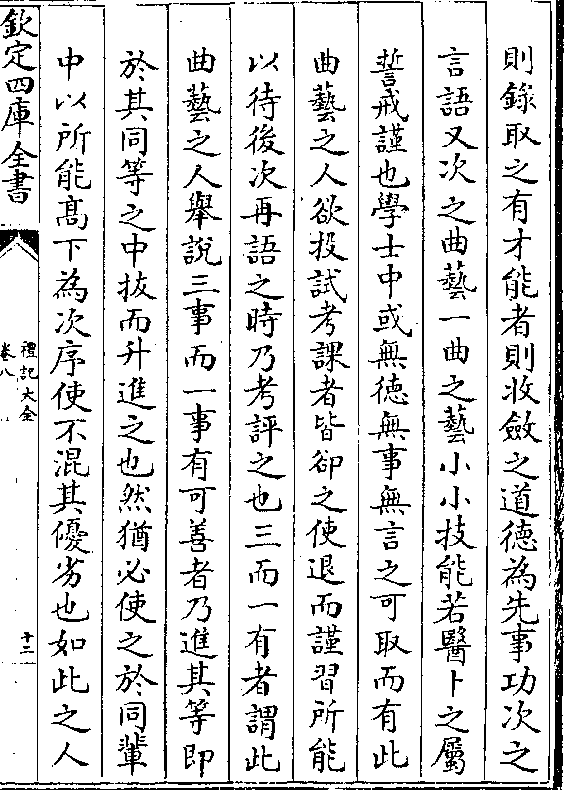 則錄取之有才能者則收斂之道德為先事功次之
言語又次之曲藝一曲之藝小小技能若醫卜之屬
誓戒謹也學士中或無德無事無言之可取而有此
曲藝之人欲投試考課者皆卻之使退而謹習所能
以待後次再語之時乃考評之也三而一有者謂此
曲藝之人舉說三事而一事有可善者乃進其等即
於其同等之中拔而升進之也然猶必使之於同輩
中以所能髙下為次序使不混其優劣也如此之人
欽定四庫全書
禮記大全
卷八
十二